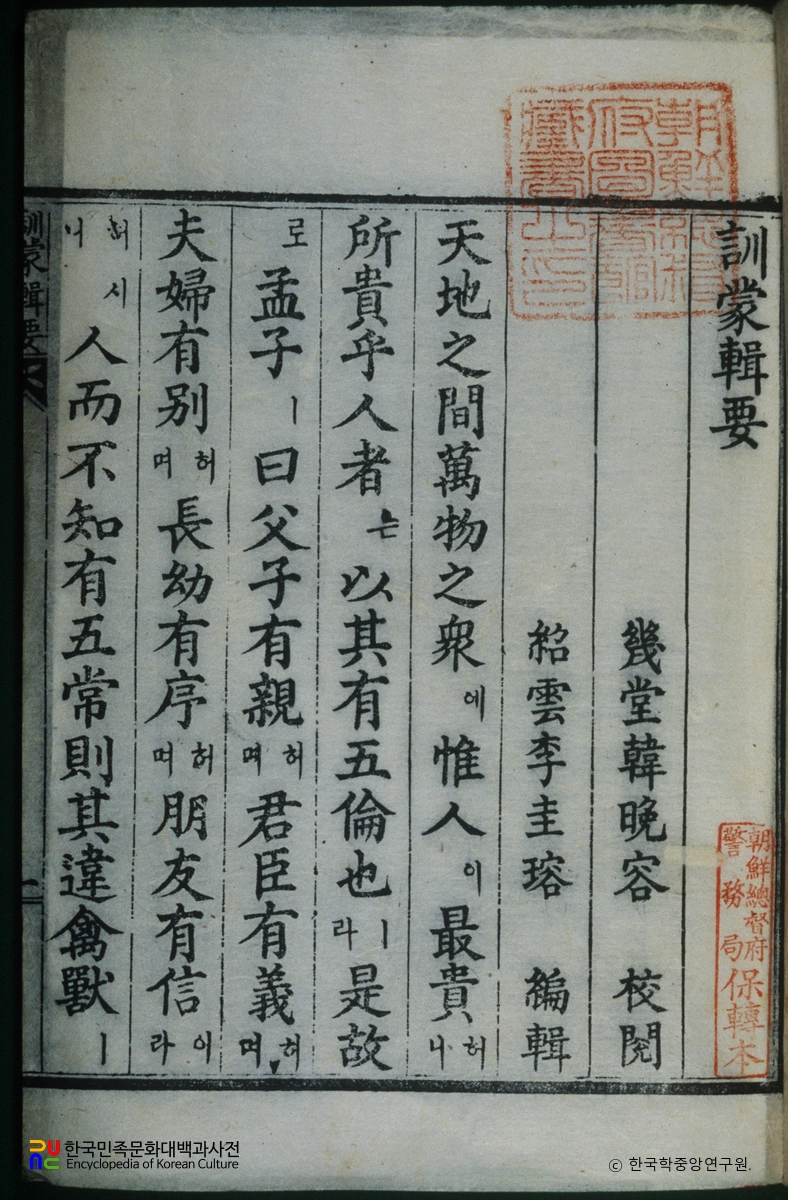 訓蒙輯要
幾堂韓晩容 校閱
紹雲李圭瑢 編輯
天地之間萬物之衆에惟人이最貴허니
所貴乎人者는以其有五倫也ㅣ라是故
로孟子ㅣ曰父子有親허며君臣有義허며
夫婦有別허며長幼有序허며朋友有信이라
허시니人而不知有五常則其違禽獸ㅣ
訓蒙輯要
一
朝鮮總督府圖書館藏書之印
朝鮮總督府
警務局
保轉本
한국민족문화대백과사전
Encyclopedia of Korean Culture
© 한국학중앙연구원.